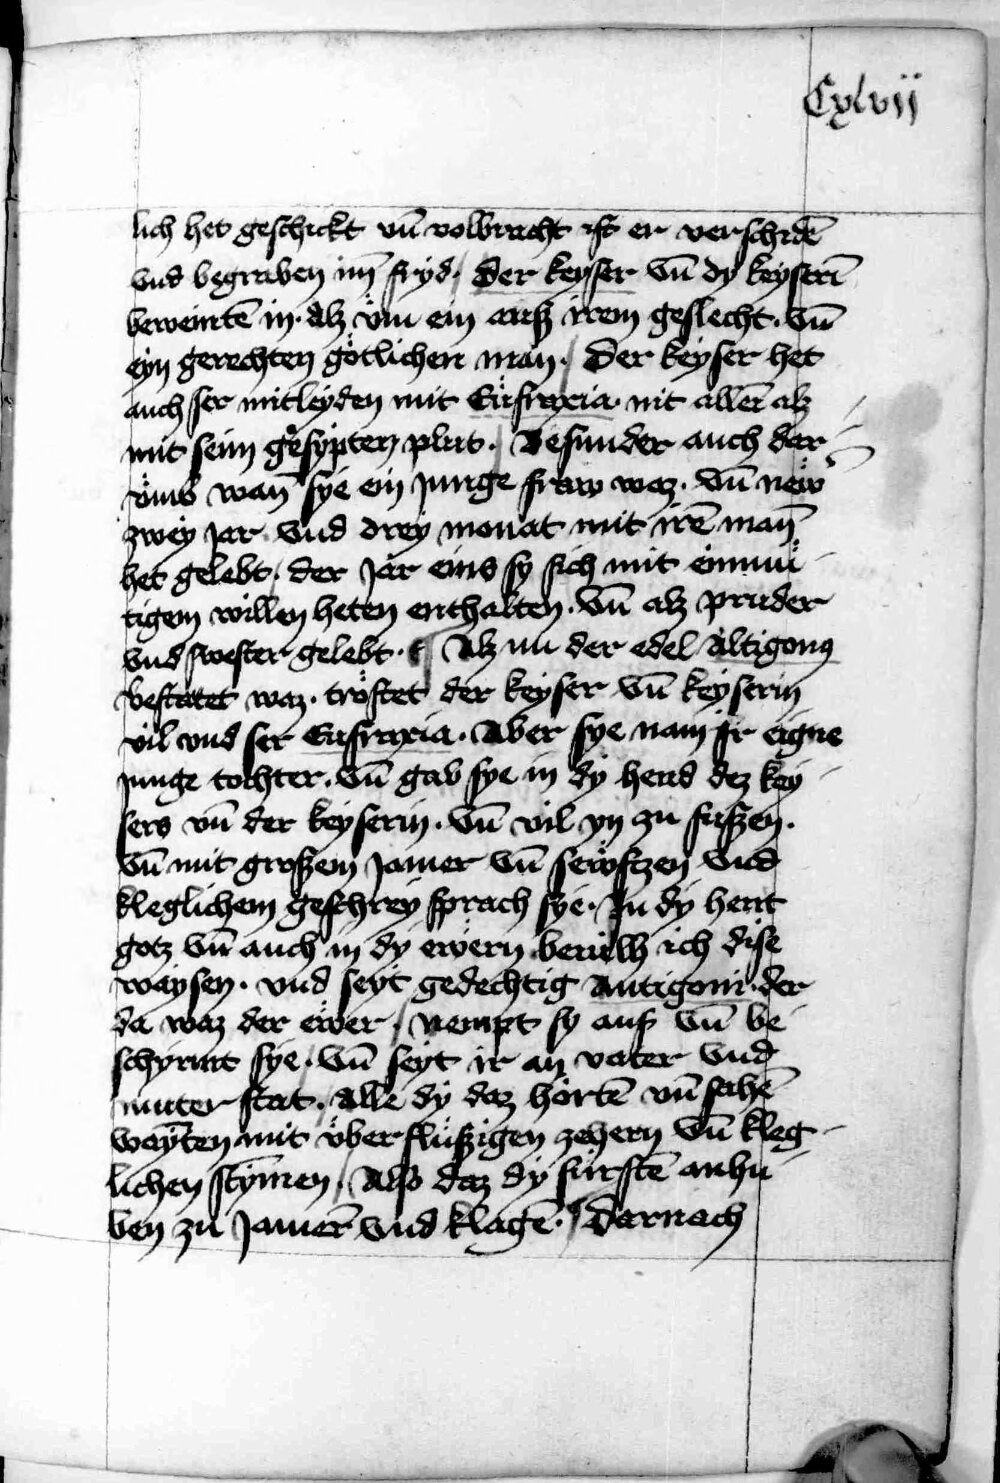 Cxlvii
lich het geschickt vn̄ volbracht ist er verschidē
vnd begraben im̄ fryd. Der keyser vn̄ dy keyserī
beweintē in. Alz v̈m ein auß irem geslecht. vn̄
eyn gerechten götlichen man. Der keyser het
auch ser mitleyden mit Eüfraxia. nit allein alz
mit seim gesypten plut. Besunder auch dar
v̈mb wan̄ sye ein junge fraw waz. vn̄ new̋
zwey jar vnd drey monat mit irē man̄
het gelebt. der jar eins sy sich mit einmü
tigem willen heten enthalten. vn̄ alz pruder
vnd swester gelebt. Alz nu der edel Altigonꝰ
bestatet waz. tröstet der keyser vn̄ keyserin
vil vnd ser Eufraxia. Aber sye nam ir eigne
junge tochter. vn̄ gab sye in dy hend dez key
sers vn̄ der keyserin. vn̄ vil yn zu fußen.
vn̄ mit großem jamer vn̄ sewftzen vnd
kleglichem geschrey sprach sye. In dy hent
gotz vn̄ auch in dy ewern berilh ich dise
waysen. vnd seyt gedechtig Antigoni. der
da waz der ewer. Nempt sy auf vn̄ be
schyrmt sye. vn̄ seyt ir an vater vnd
muter stat. Alle dy daz hörtē vn̄ sahē
wayn̄ten mit überflüßigen zehern vn̄ kleg
lichen stymen. Also daz dy fürstē anhu
ben zu jamerē vnd klagē. Darnach